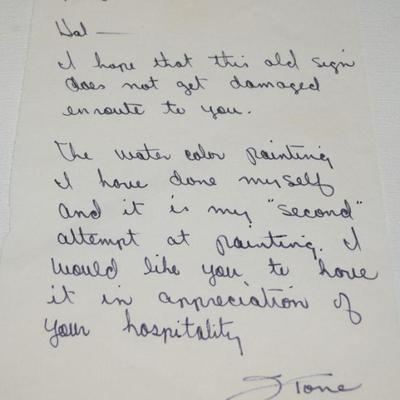 Hal —
I hope that this old sign
does not get damaged
enroute to you.
The water color painting
I have done myself
and it is my "second"
attempt at painting. I
would like you to have
it in appreciation of
your hospitality